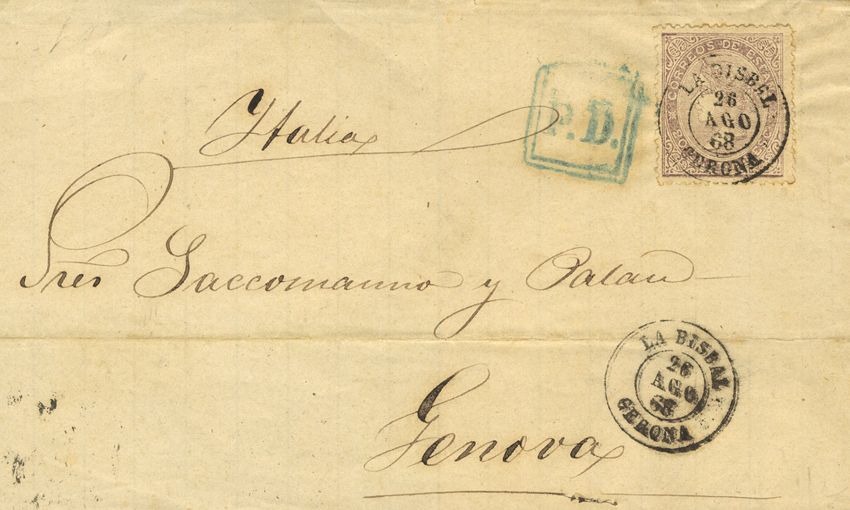 CORREOS DE ESP
LA BISBAL
26
AGO
68
GERONA
P.D.
Italia
Sres Saccomanno y Palau
LA BISBAL
26
AGO
68
GERONA
Genova